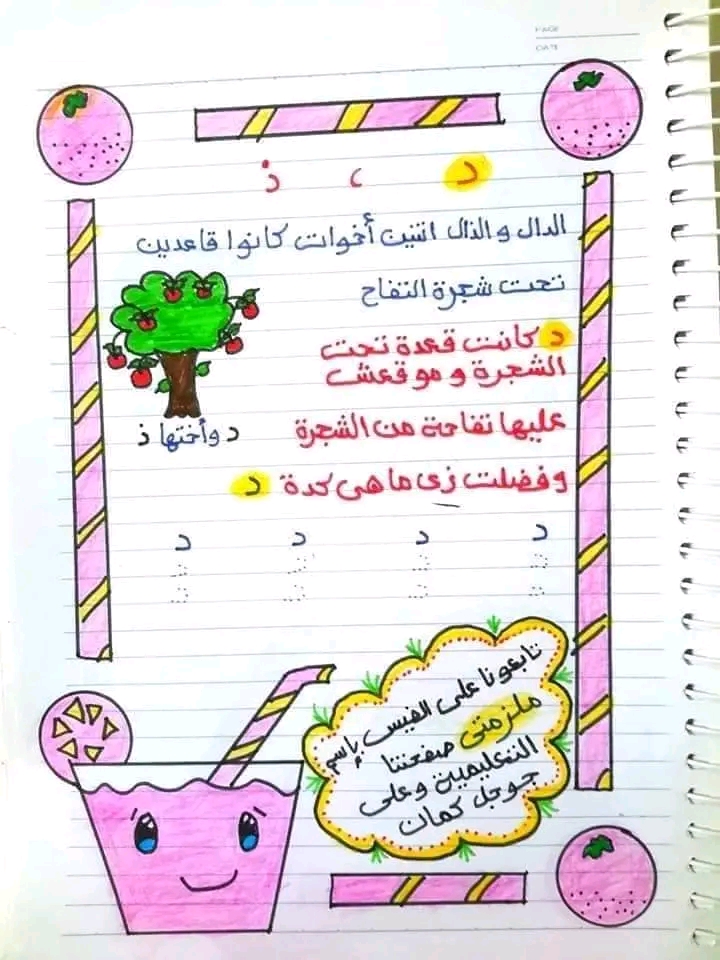 PAGE
DATE
د ، ذ
الدال والذال اتنين أخوات كانوا قاعدين
تحت شجرة التفاح
د كانت قعدة تحت
الشجرة وموقعش
عليها تفاحة من الشجرة
د وأختها ذ
وفضلت زى ما هى كدة د
د د د د
تابعونا على الفيس بإسم
ملزمتى صفحتنا
التعليمية وعلى
جوجل كمان